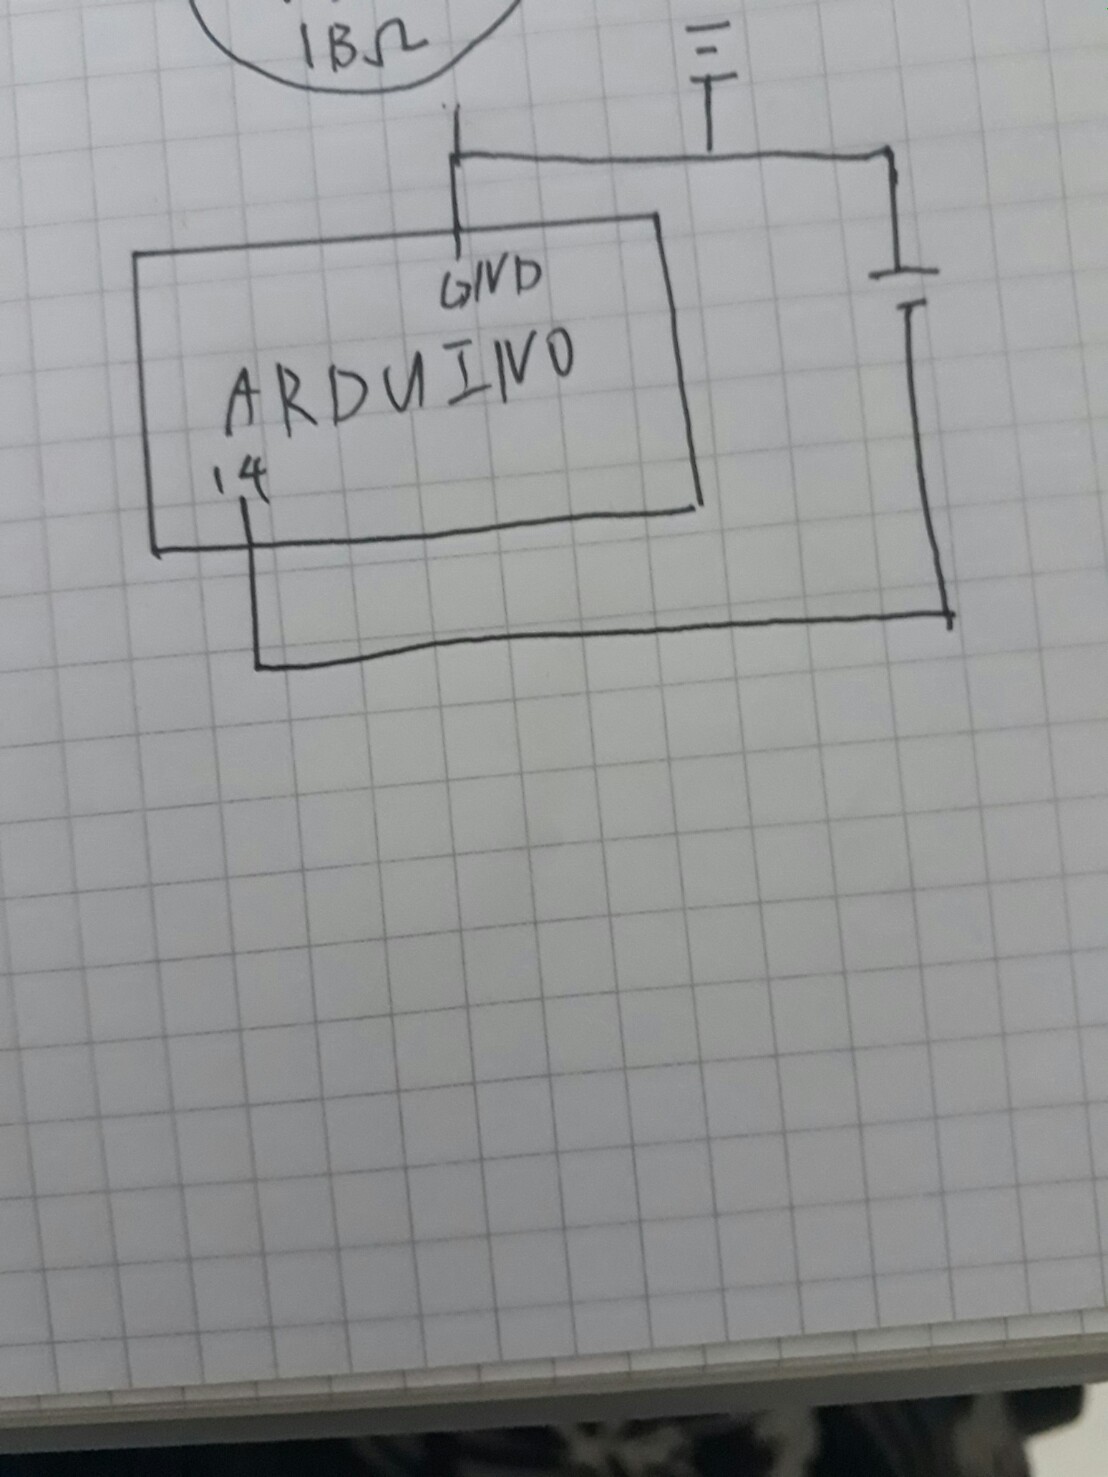 1BΩ
GND
ARDUINO
14